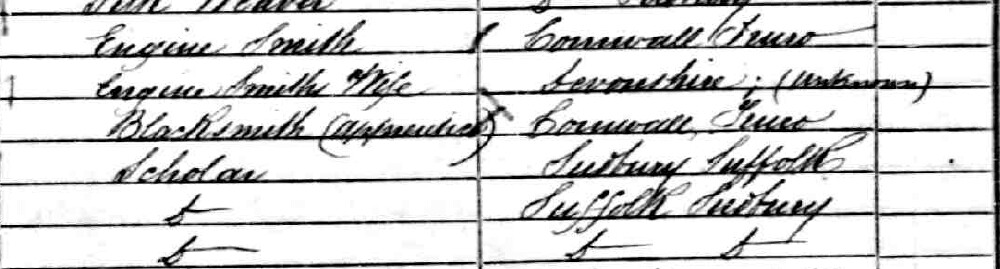 Silk Weaver Do Sudbury
Engine Smith Cornwall Truro
Engine Smiths Wife Devonshire; (unknown)
Blacksmith (apprentice) Cornwall, Truro
Scholar Sudbury Suffolk
Do Suffolk Sudbury
Do Do Do